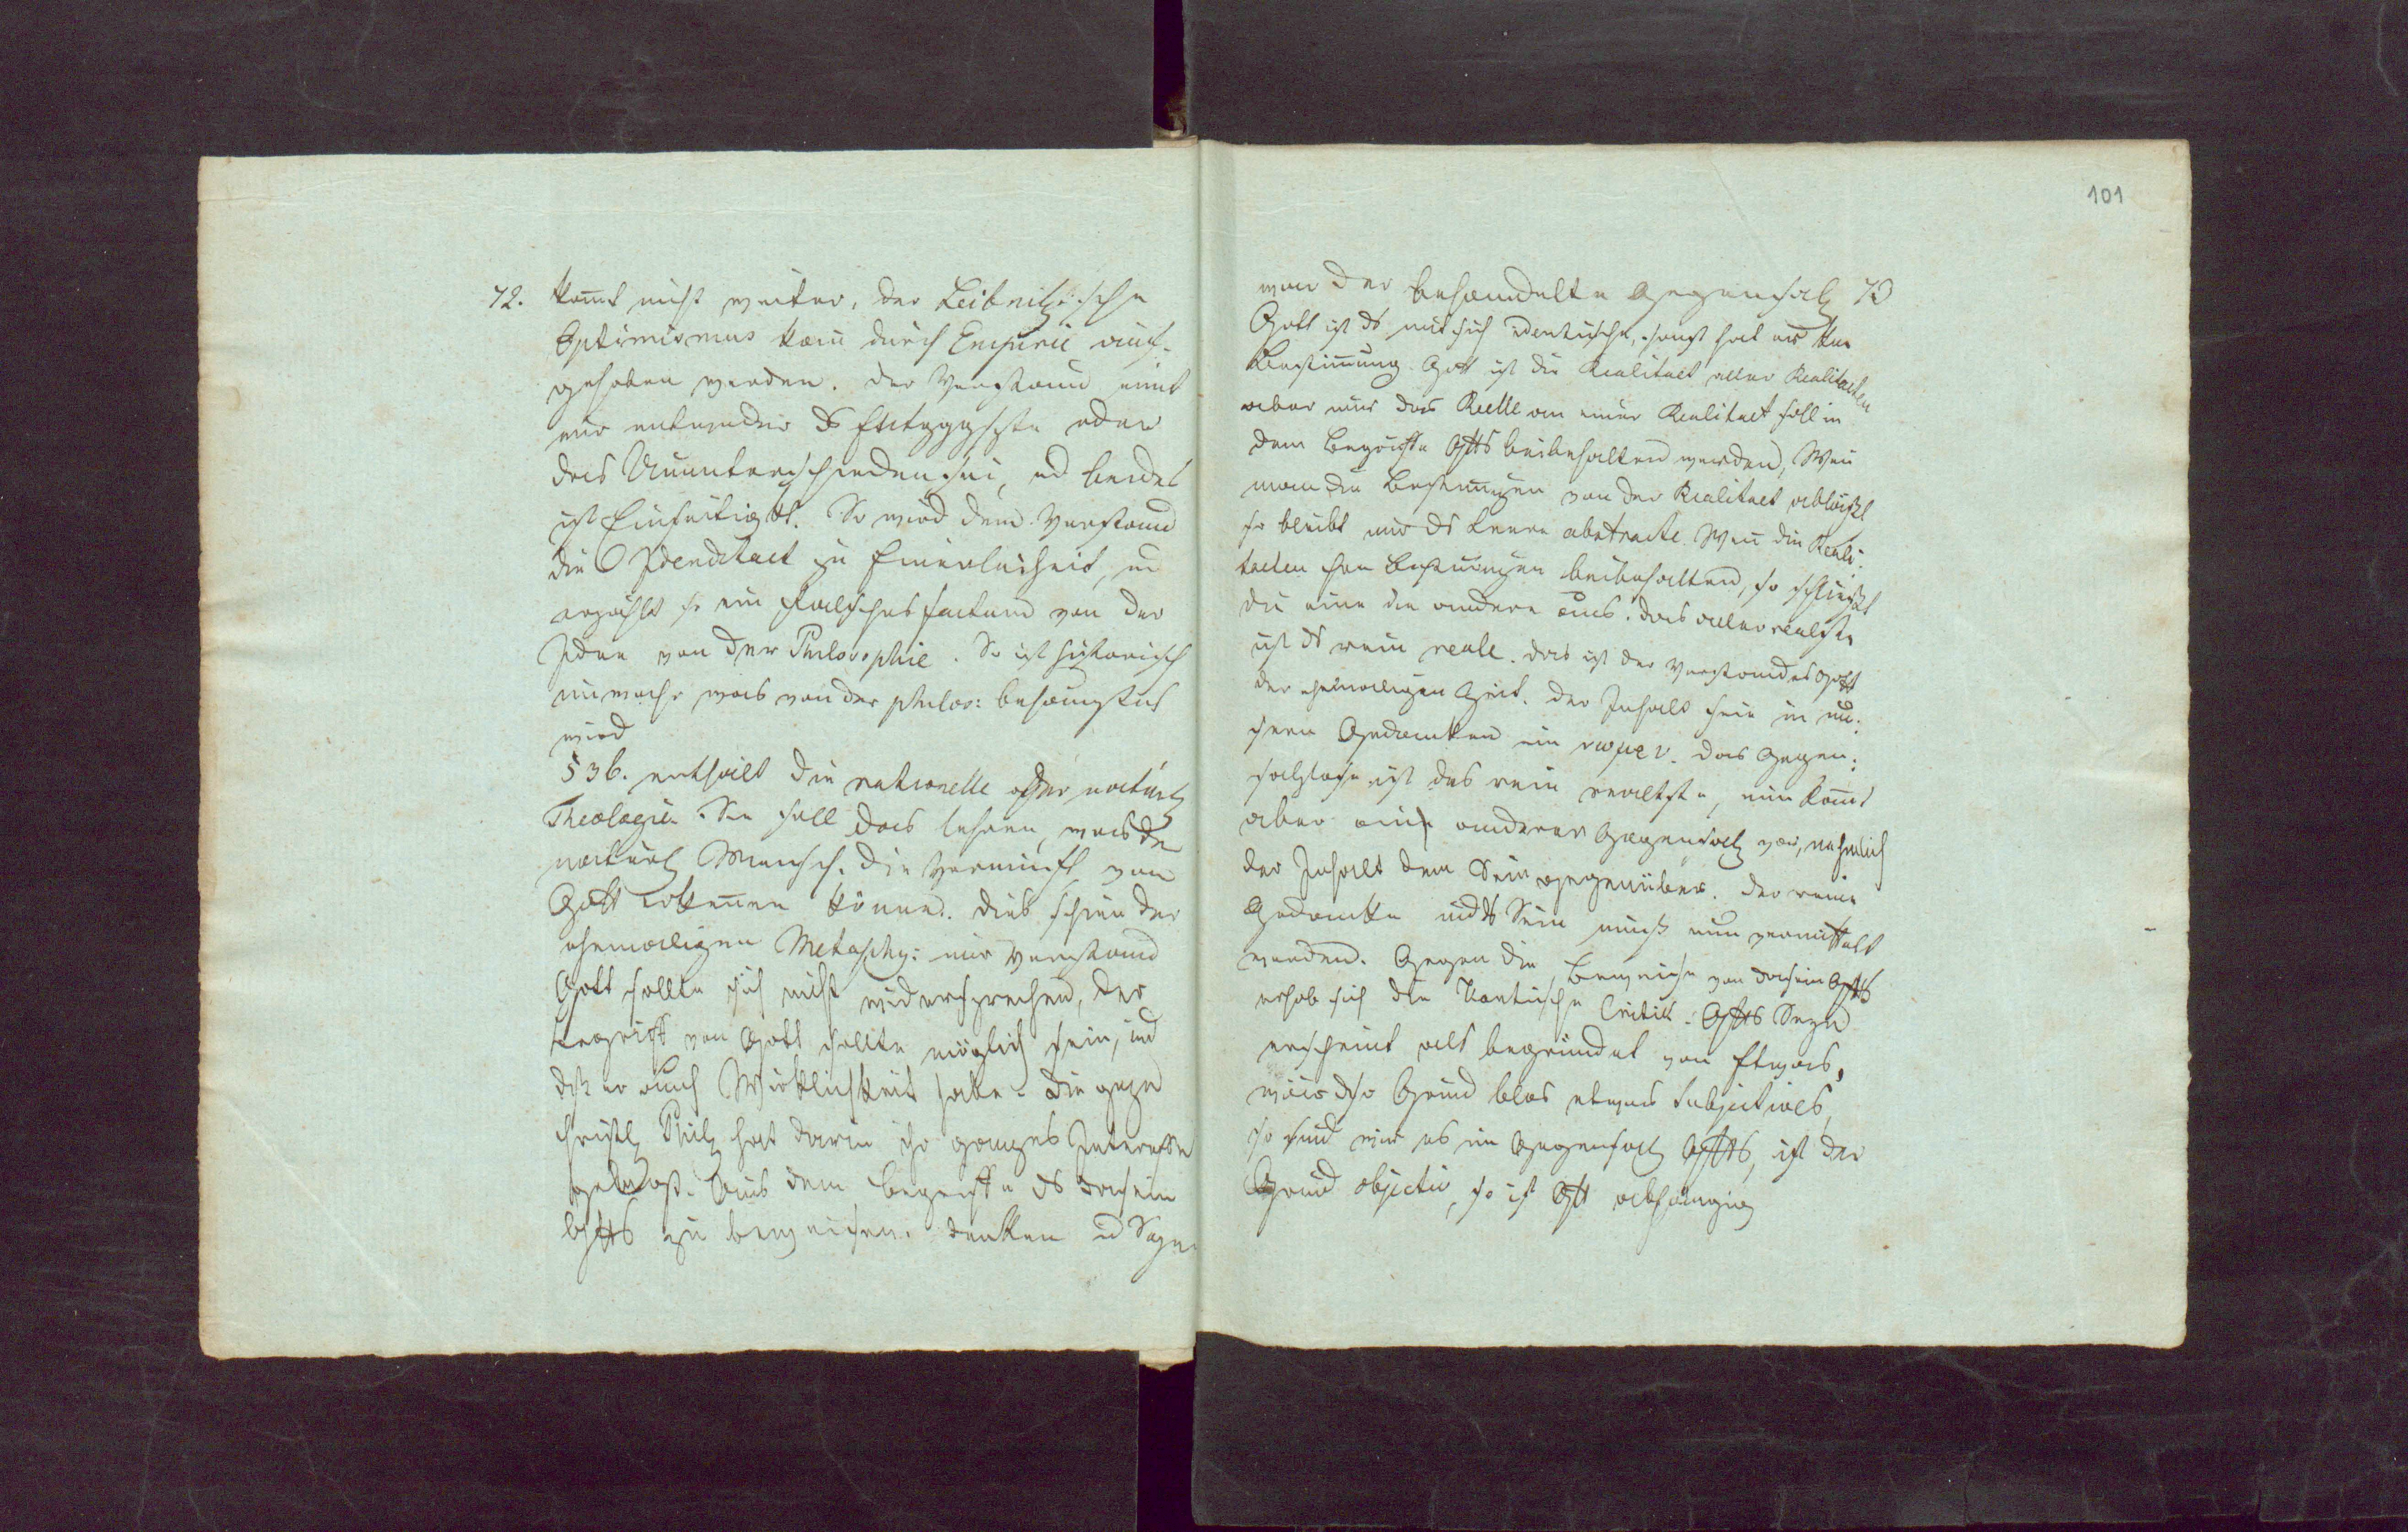 101
72. kom̄t nicht weiter, der Leibnitzische
Optimismus kan̄ durch Empirie auf-
gehoben werden. der Verstand nim̄t
nur entweder ds Entgggsetzte oder
das Ununterschiedensein, und beides
ist Einseitigkt. So wird dem Verstand
die Idendität zu Einerleiheit, und
erzählt so ein falsches factum von der
Idee von der Philosophie. So ist historisch
unwahr was von der philos: behauptet
wird
§ 36. enthält die rationelle oder natürl
Theologie. Sie soll das lehren, was der
natürl Mensch. die Vernunft von
Gott erken̄en könne. dies schien der
ehemaligen Metaphy: nur Verstand
Gott sollte sich nicht widersprechen, der
Begriff von Gott sollte möglich sein, und
dß er auch Wirklichkeit habe. die ganze
christl Phil hat darin ihr ganzes Interesse
Aus dem Begriffe ds Dasein
Gotts zu beweisen. denken und Seyn
war der behandelte Gegensatz 73
Gott ist ds mit sich identische, sonst hat er keine
Bestim̄ung. Gott ist die Realitaet aller Realitaeten
aber nur das Reelle an einer Realitaet soll in
dem Begriffe Gotts beibehalten werden, Wen̄
man die Bestim̄ungen von der Realitaet abläßt
so bleibt nur ds Leere abstracte. Wen̄ die Reali-
taeten ihre Bestim̄ungen beibehalten, so schließt
die eine die andere aus. das allerrealste
ist ds rein reale. das ist der Verstandes Gott
der ehemaligen Zeit. der Inhalt sei in un-
sern Gedanken ein das Gegen-
satzlose ist das rein realste, nun kom̄t
aber ein anderer Gegensatz vor, nehmlich
der Inhalt dem Sein gegenüber. der reine
Gedanke und ds Sein muß nun vermittelt
werden. Gegen die Beweise von Dasein Gotts
erhob sich die Kantische Critik. Gotts Seyn
erscheint als begründet von Etwas,
wäre dsr Grund blos etwas subjectives,
so sind wir es im Gegensatz Gotts, ist der
Grund objectiv, so ist Gott abhängig